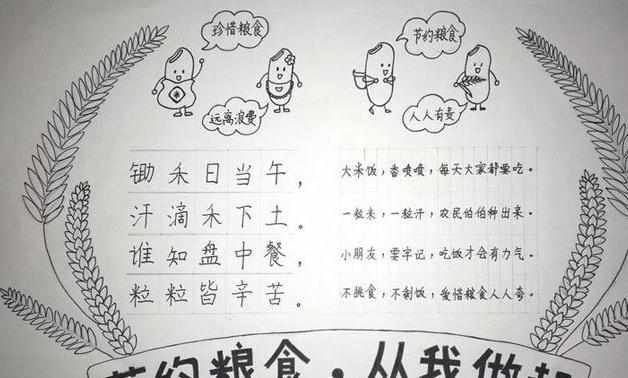 珍惜粮食
节约粮食
远离浪费
人人有责
锄禾日当午，
汗滴禾下土。
谁知盘中餐，
粒粒皆辛苦。
大米饭，香喷喷，每天大家都要吃。
一粒米，一粒汗，农民伯伯种出来。
小朋友，要牢记，吃饭才会有力气。
不挑食，不剩饭，爱惜粮食人人夸。
节约粮食·从我做起